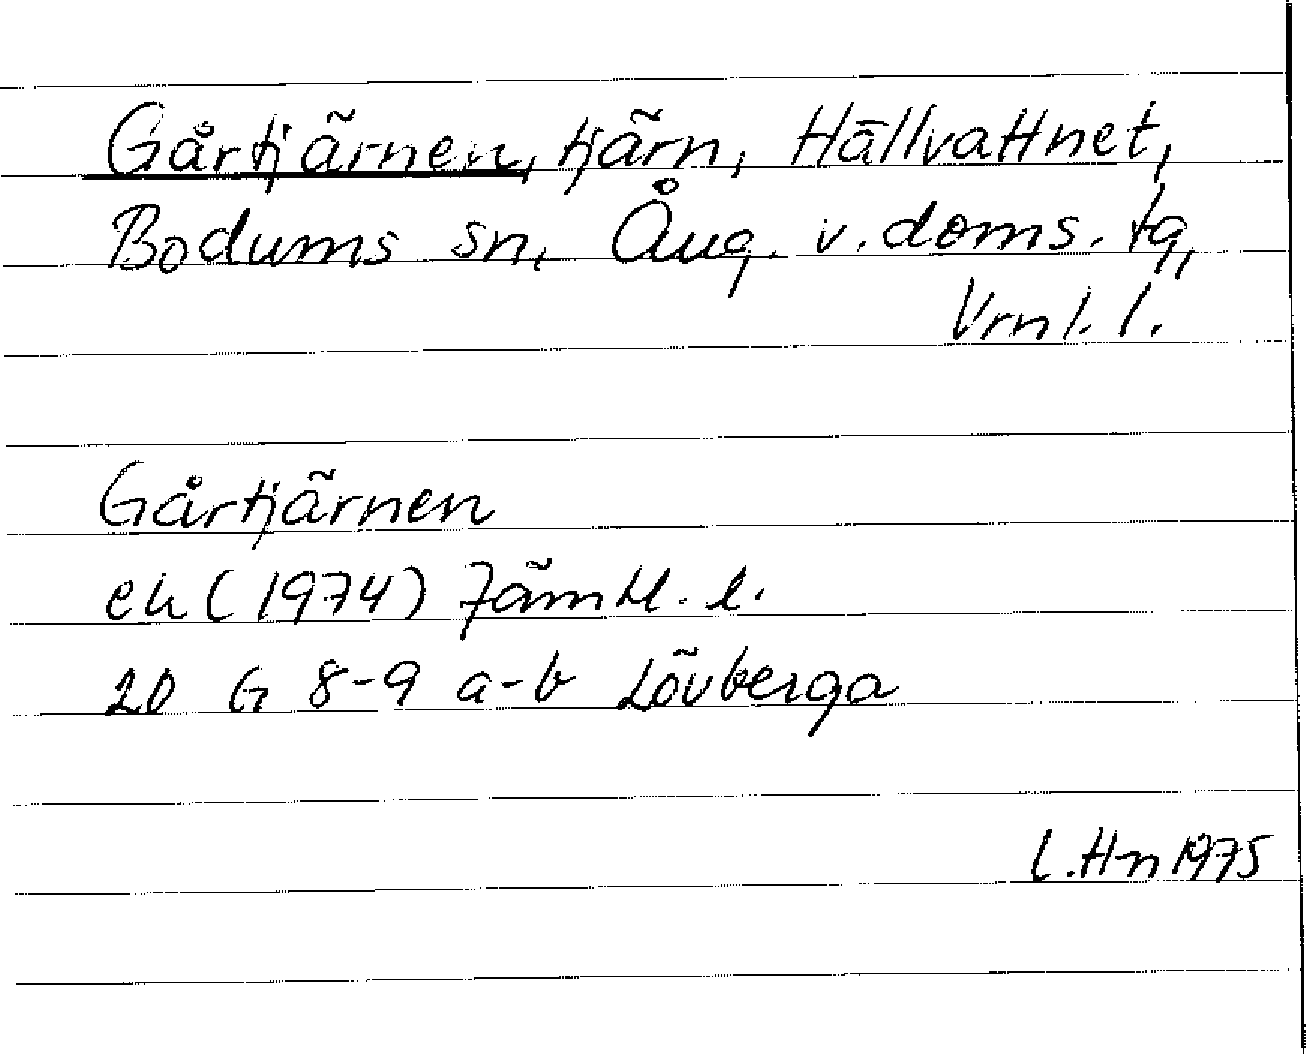 Gårtjärnen, tjärn, Hällvattnet,
Bodums sn, Ång. v. doms. tg,
Vrnl. l.
Gårtjärnen
ek (1974) Jämtl. l.
20 G 8-9 a-b Lövberga
L.Hn 1975